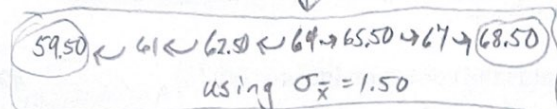 59.50 ← 61 ← 62.50 ← 64 → 65.50 → 67 → 68.50
using σx̄ = 1.50